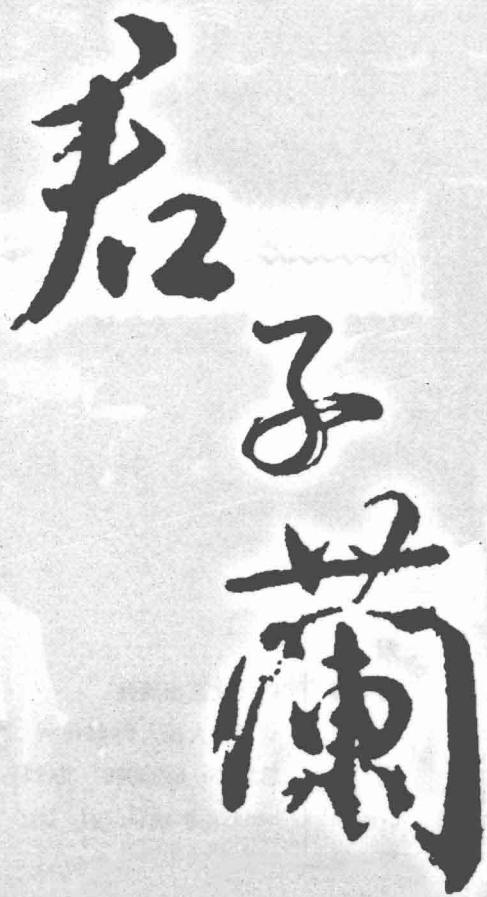 君子蘭